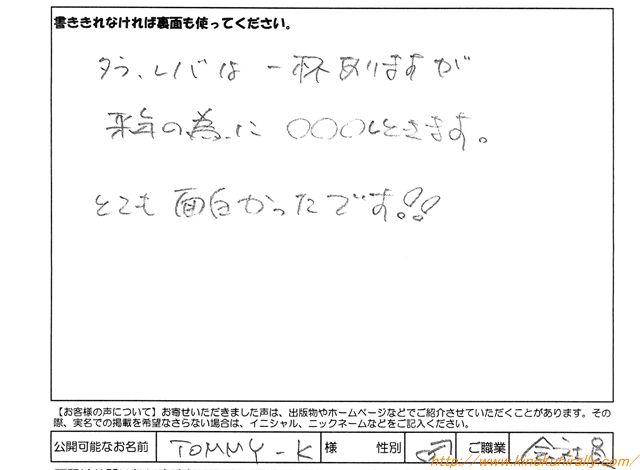 書ききれなければ裏面も使ってください。
タラ、レバは一杯ありますが
来年の為に○○○しときます。
とても面白かったです!!
【お客様の声について】お寄せいただきました声は、出版物やホームページなどでご紹介させていただくことがあります。その
際、実名での掲載を希望なさらない場合は、イニシャル、ニックネームなどをご記入ください。
公開可能なお名前 TOMMY-K 様 性別 ♂ ご職業 会社員